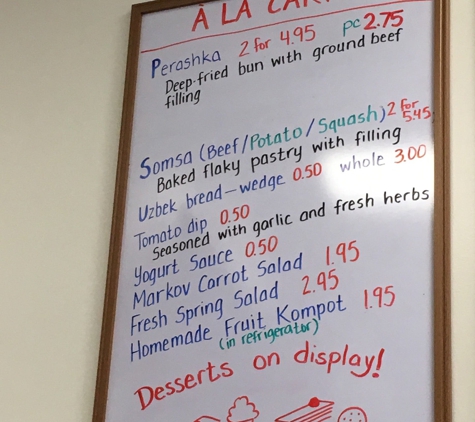 À LA
Perashka 2 for 4.95 pc 2.75
Deep-fried bun with ground beef
filling
Somsa (Beef/Potato/Squash) 2 for 5.45
Baked flaky pastry with filling
Uzbek bread—wedge 0.50 whole 3.00
Tomato dip 0.50
Seasoned with garlic and fresh herbs
Yogurt Sauce 0.50
Markov Carrot Salad 1.95
Fresh Spring Salad 2.95
Homemade Fruit Kompot 1.95
(in refrigerator)
Desserts on display!